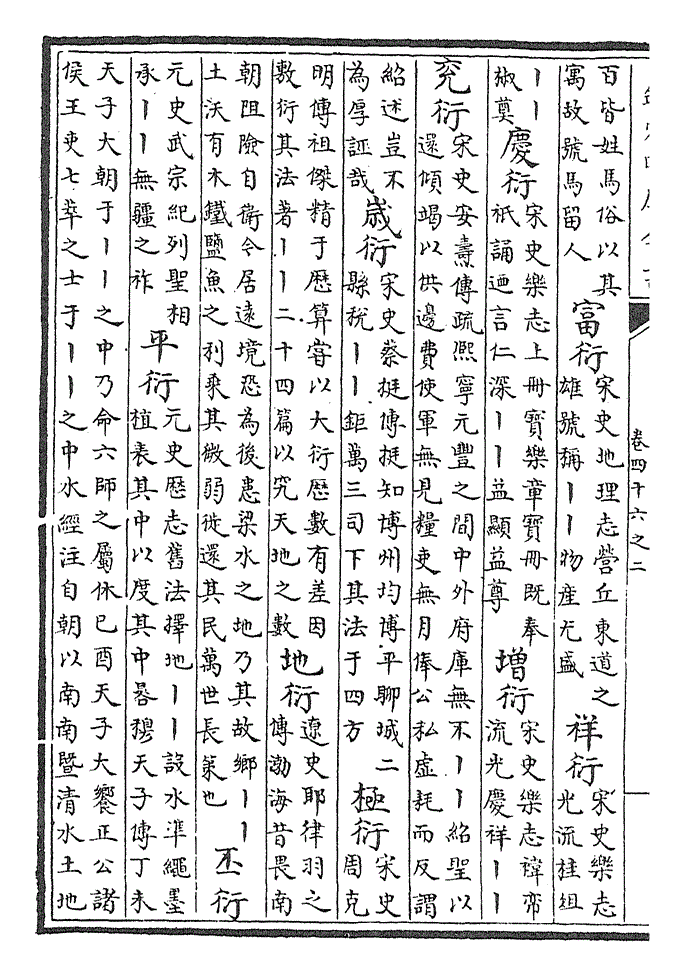 卷四十六之二
百皆姓馬俗以其
寓故號馬留人
富衍
宋史地理志營丘東道之
雄號稱丨丨物産尤盛
祥衍
宋史樂志
光流桂俎
丨丨
椒奠
慶衍
宋史樂志上冊寶樂章寶冊既奉
祇誦迺言仁深丨丨益顯益尊
増衍
宋史樂志禕帝
流光慶祥丨丨
充衍
宋史安燾傳疏熙寧元豐之間中外府庫無不丨丨紹聖以
還傾竭以供邊費使軍無見糧吏無月俸公私虛耗而反謂
紹述豈不
為厚誣哉
歳衍
宋史蔡挺傳挺知博州均博平聊城二
縣税丨丨鉅萬三司下其法于四方
極衍
宋史
周克
明傳祖傑精于歴算甞以大衍歴數有差因
敷衍其法著丨丨二十四篇以究天地之數
地衍
遼史耶律羽之
傳渤海昔畏南
朝阻險自衛今居遠境恐為後患梁水之地乃其故鄉丨丨
土沃有木鐵鹽魚之利乘其微弱徙還其民萬世長策也
丕衍
元史武宗紀列聖相
承丨丨無疆之祚
平衍
元史歴志舊法擇地丨丨設水準繩墨
植表其中以度其中晷穆天子傳丁未
天子大朝于丨丨之中乃命六師之屬休己酉天子大饗正公諸
侯王吏七萃之士于丨丨之中水經注自朝以南南暨清水土地